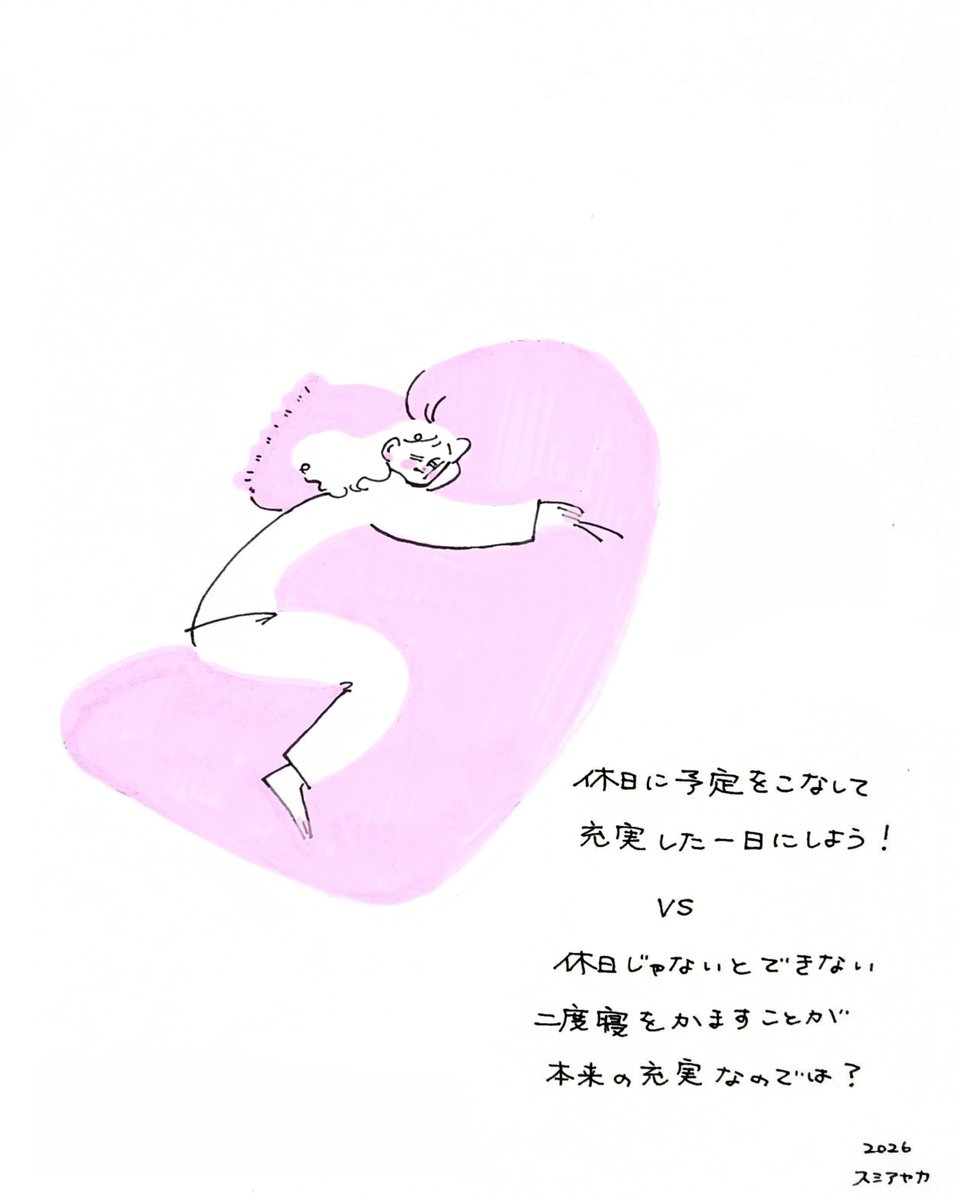 休日に予定をこなして
充実した一日にしよう!
VS
休日じゃないとできない
二度寝をかますことが
本来の充実なのでは?
2026
スミアヤカ